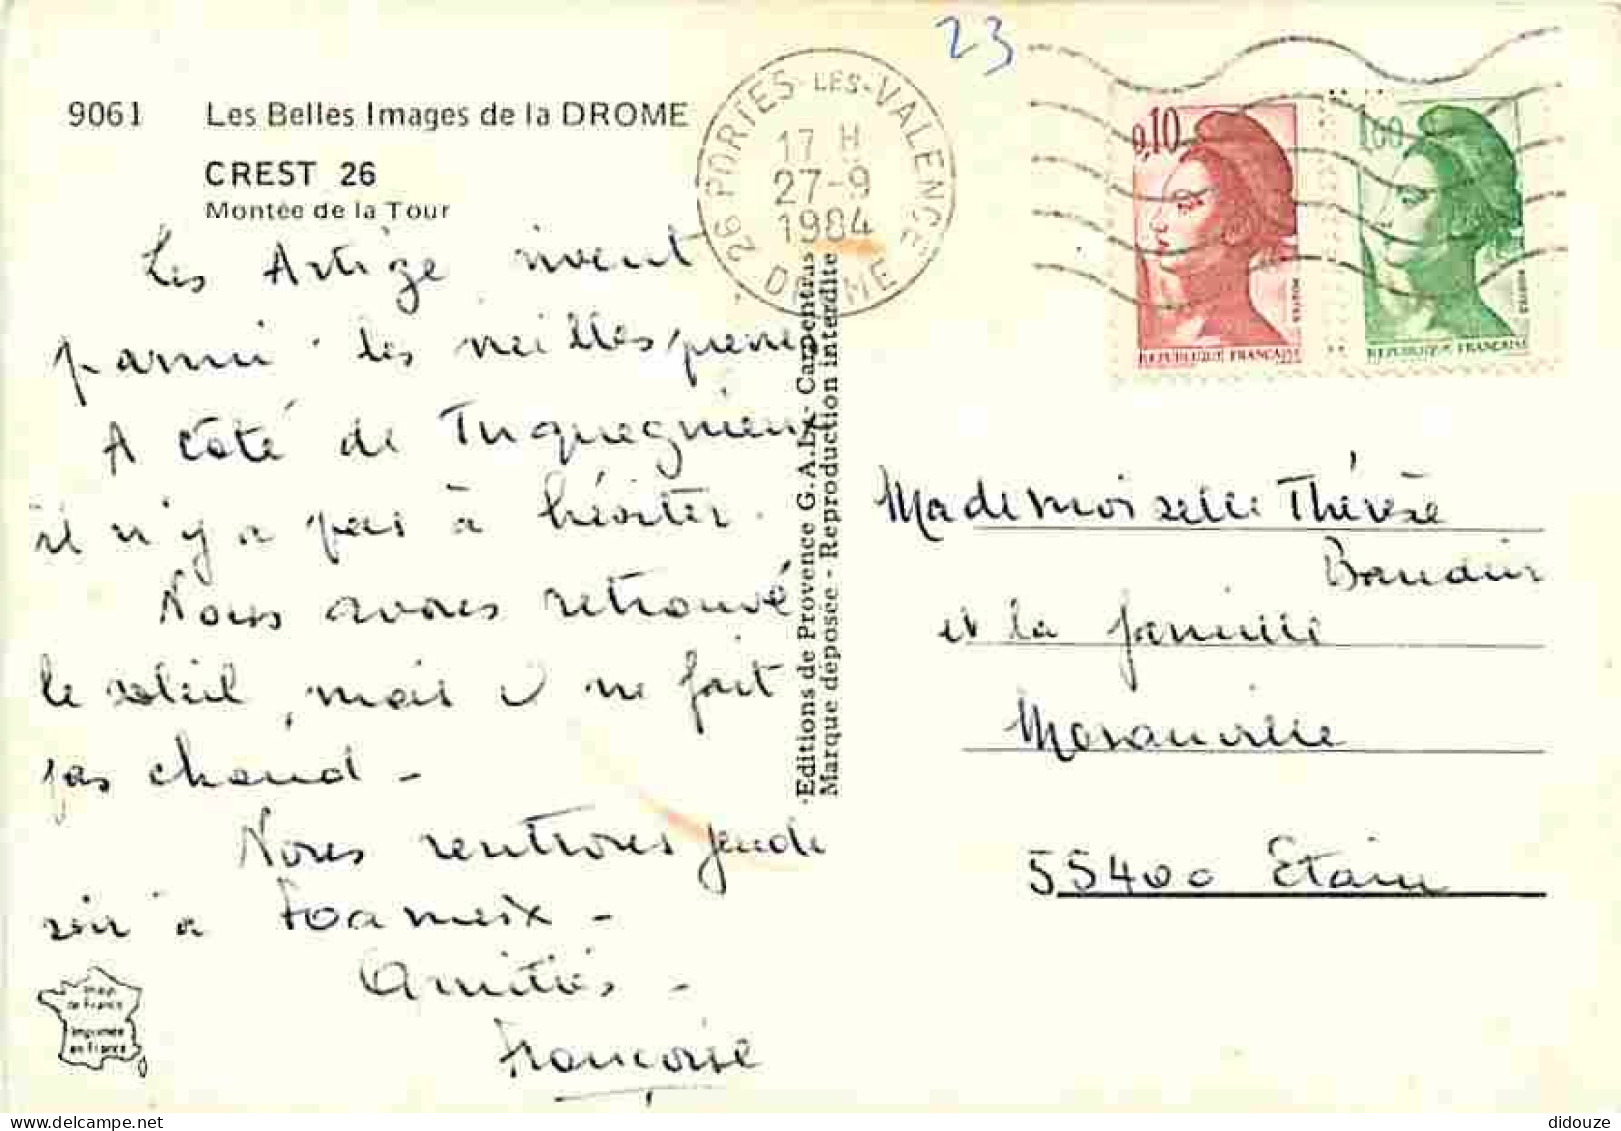 23
9061 Les Belles Images de la DROME
CREST 26
Montée de la Tour
26 PORTES-LES-VALENCE
17 H
27-9
1984
DROME
0,10
REPUBLIQUE FRANÇAISE
1,60
REPUBLIQUE FRANÇAISE
Les Artige vivent
parmi les vieilles pierres
A côté de
il n'y a pas à hésiter.
Nous avons retrouvé
le soleil, mais il ne fait
pas chaud -
Nous rentrons jeudi
soir à Foameix -
Amitiés -
Françoise
Editions de Provence G.A.L. - Carpentras
Marque déposée - Reproduction interdite
Mademoiselle Thérèse
Baudoin
et la famille
Moranville
55400 Etain
Image
de France
Imprimée
en France
didouze